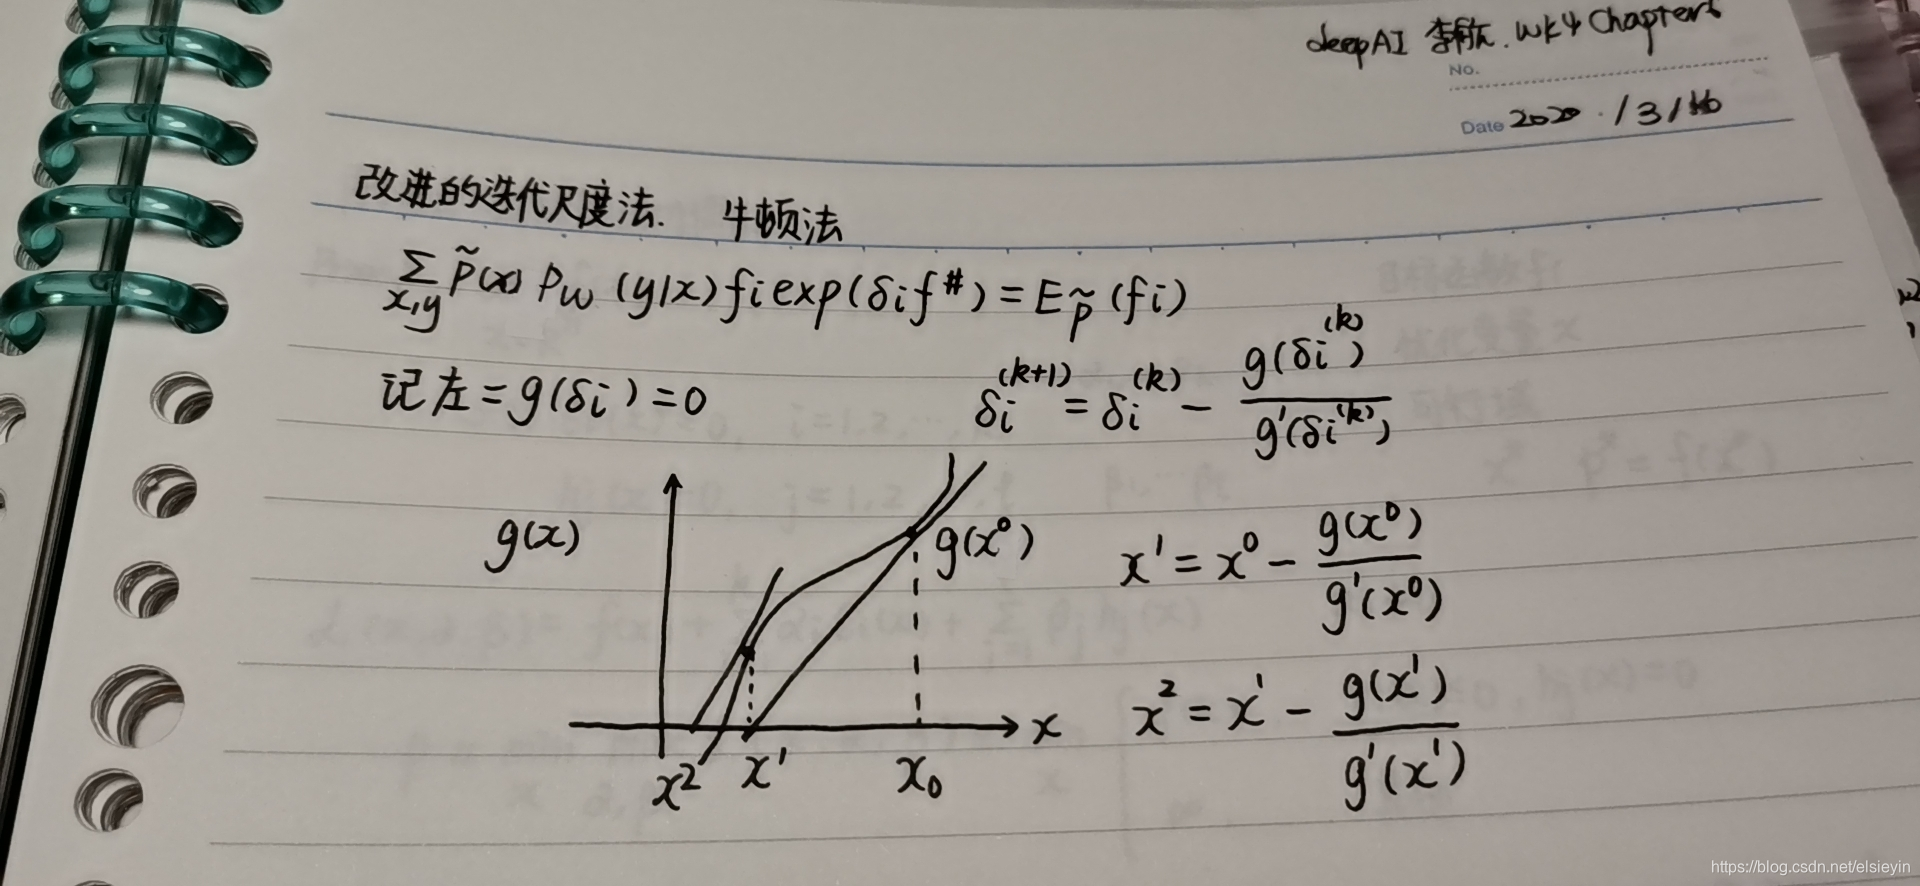 deepAI 李欣. wk4 Chapter6
No.
Date 2020 . / 3 / 16
改进的迭代尺度法. 牛顿法
∑ p̃(x) Pw (y|x) fi exp(δi f^#) = E p̃ (fi)
x,y
记左 = g(δi) = 0
δi^(k+1) = δi^(k) − g(δi^(k)) / g'(δi^(k))
g(x)
g(x⁰)
x¹ = x⁰ − g(x⁰) / g'(x⁰)
x
x² = x¹ − g(x¹) / g'(x¹)
x² x¹ x₀
https://blog.csdn.net/elsieyin